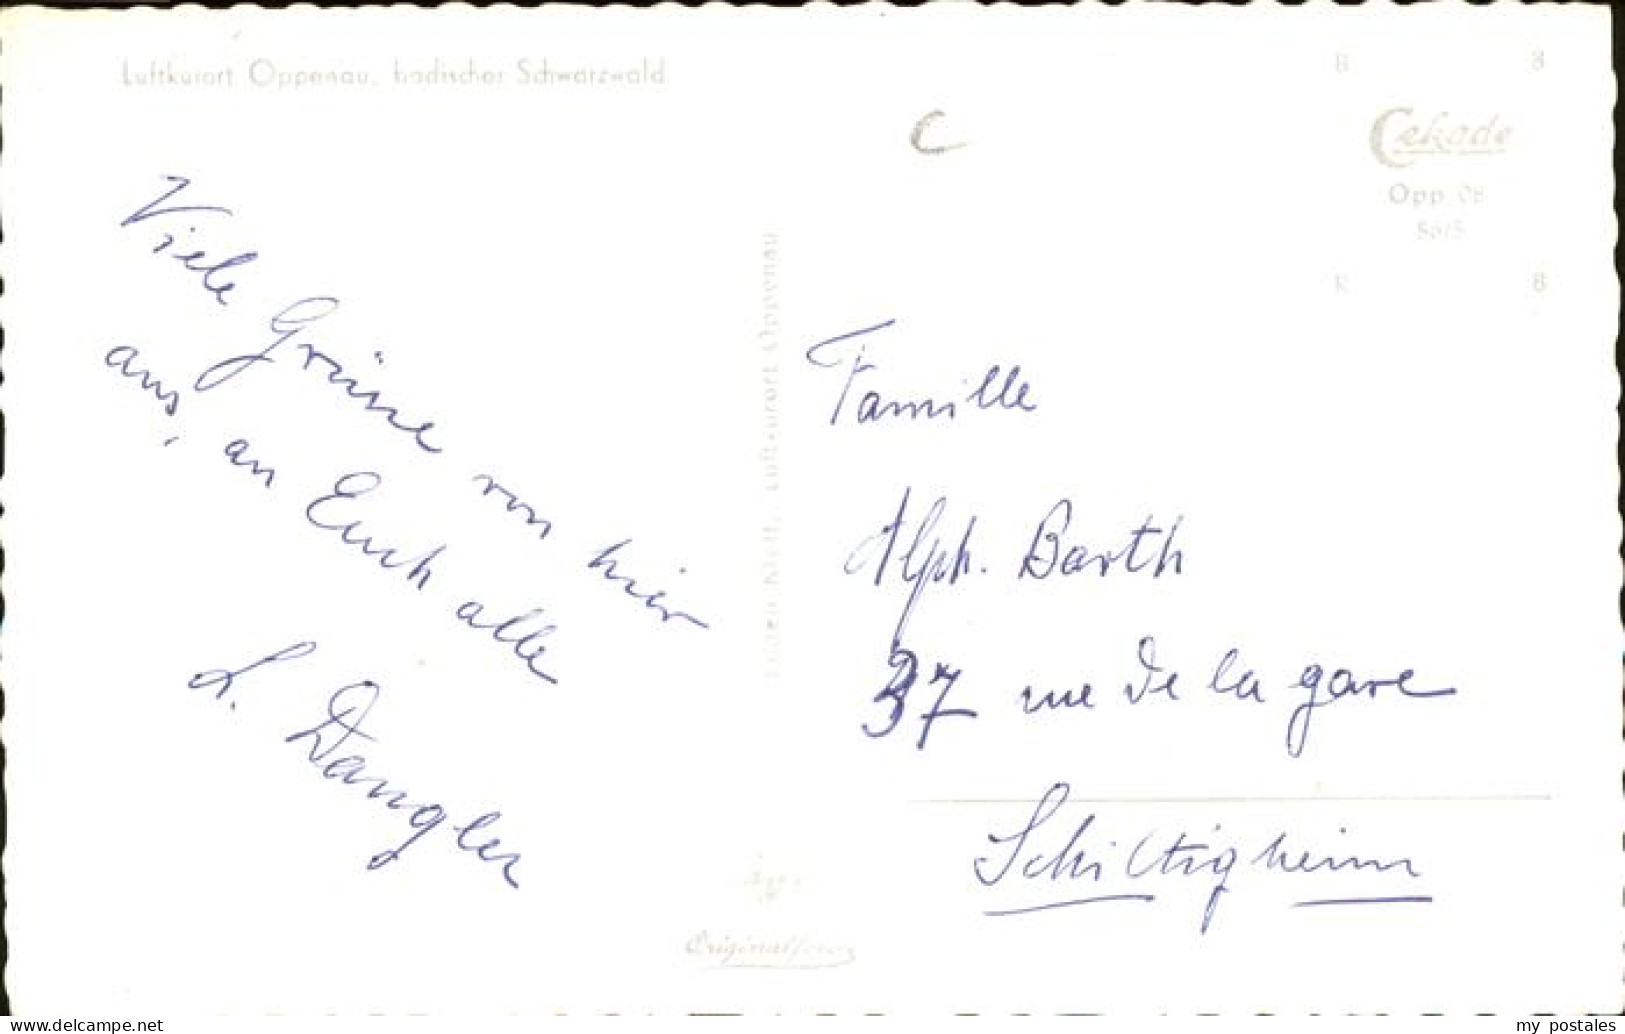 Luftkurort Oppenau, badischer Schwarzwald
Viele Grüsse von hier
aus, an Euch alle
L. Dangler
Luftkurort Oppenau
C
Cekade
Opp 08
Famille
Alph. Barth
37 rue de la gare
Schiltigheim
my postales
www.delcampe.net